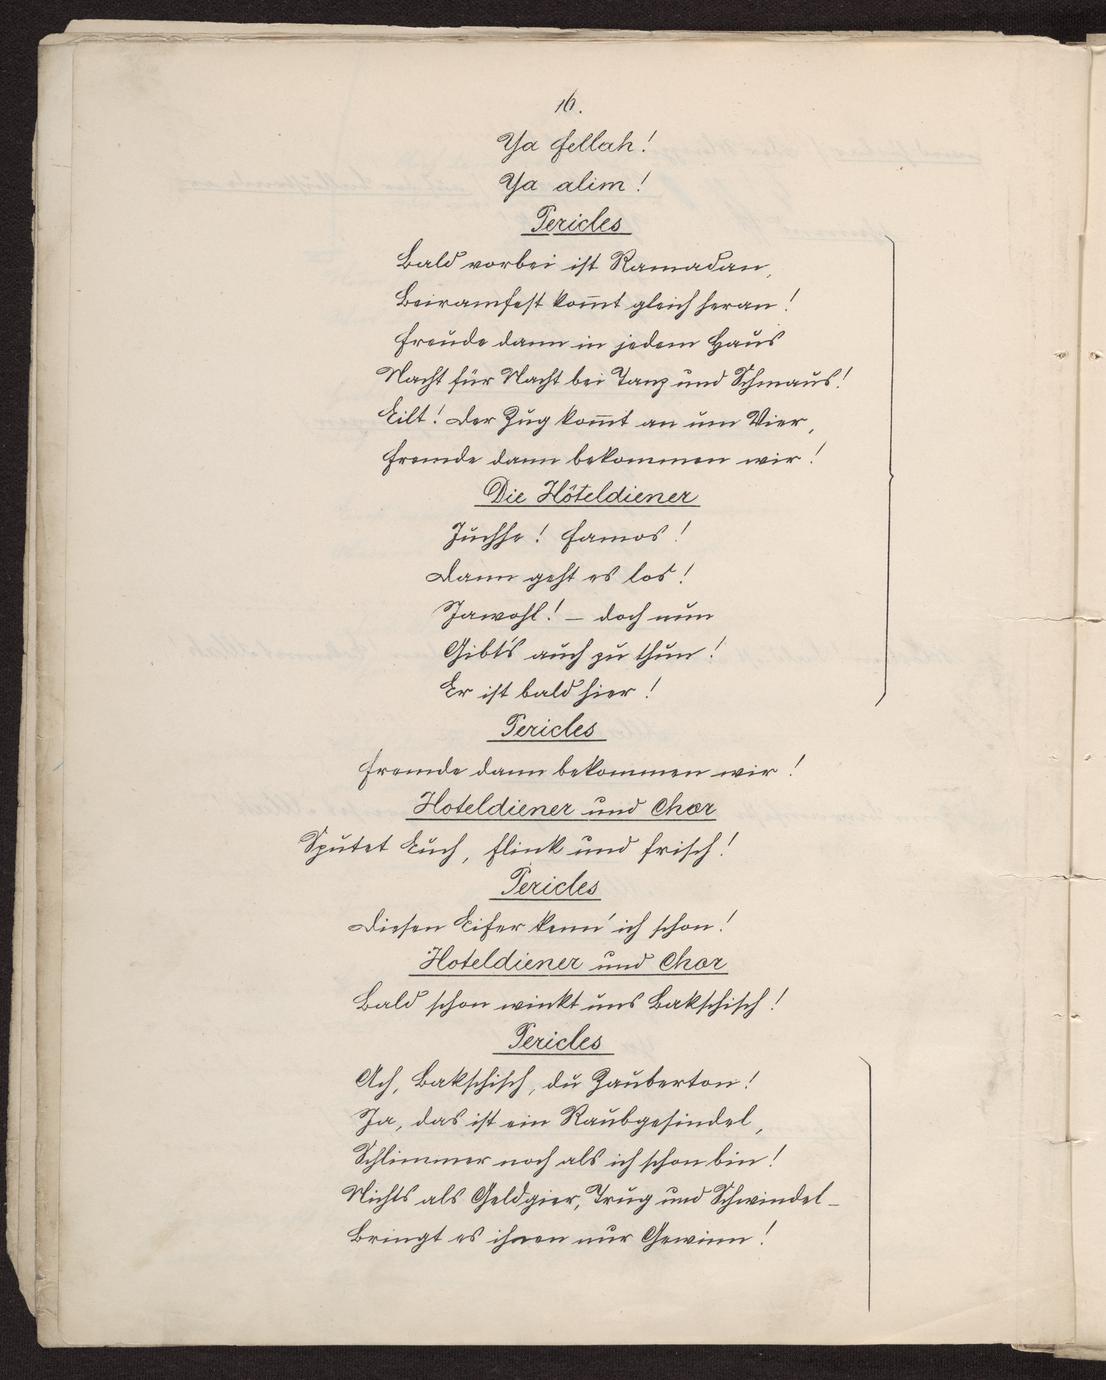 16.
Ya fellah!
Ya alim!
Pericles
Bald vorbei ist Ramadan,
Beiramfest kom̅t gleich heran!
Freude dann in jedem Haus
Nacht für Nacht bei Tanz und Schmaus!
Eilt! Der Zug kom̅t an um Vier,
Fremde dann bekommen wir!
Die Hôteldiener
Juchhe! Famos!
Dann geht es los!
Jawohl! – doch nun
Gibt's auch zu thun!
Er ist bald hier!
Pericles
Fremde dann bekommen wir!
Hoteldiener und Chor
Sputet Euch, flink und frisch!
Pericles
Diesen Eifer kenn' ich schon!
Hoteldiener und Chor
Bald schon winkt uns Bakschisch!
Pericles
Ach, Bakschisch, du Zauberton!
Ja, das ist ein Raubgesindel,
Schlimmer noch als ich schon bin!
Nichts als Geldgier, Trug und Schwindel –
Bringt es ihnen nur Gewinn!